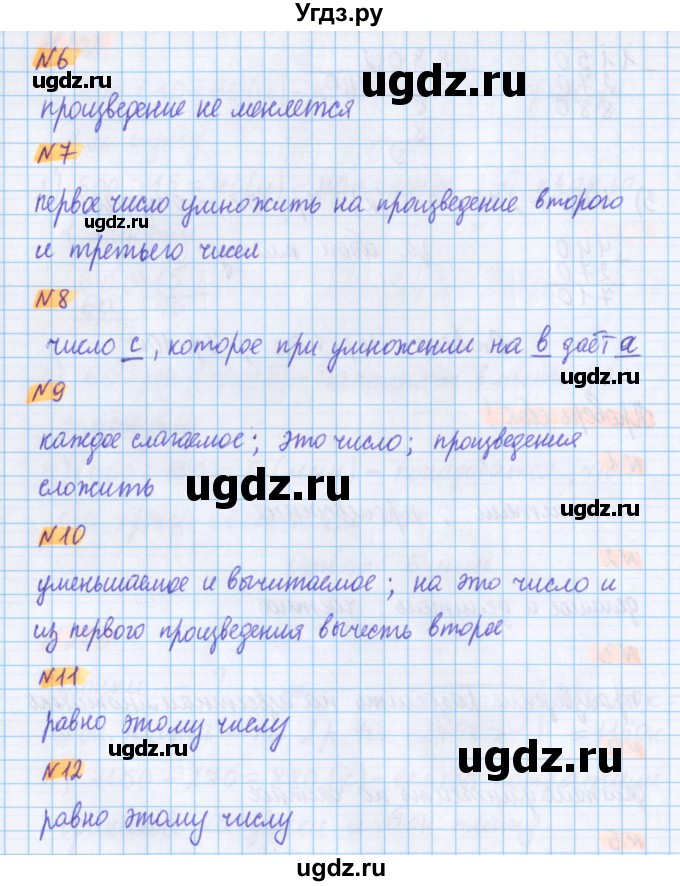 Угдз.ру
№6
произведение не меняется
№7
первое число умножить на произведение второго
и третьего чисел
№8
число с, которое при умножении на в даёт а
№9
каждое слагаемое; это число; произведения
сложить
№10
уменьшаемое и вычитаемое; на это число и
из первого произведения вычесть второе
№11
равно этому числу
№12
равно этому числу
ugdz.ru
ugdz.ru
ugdz.ru
ugdz.ru
ugdz.ru
ugdz.ru
ugdz.ru
ugdz.ru
ugdz.ru
ugdz.ru